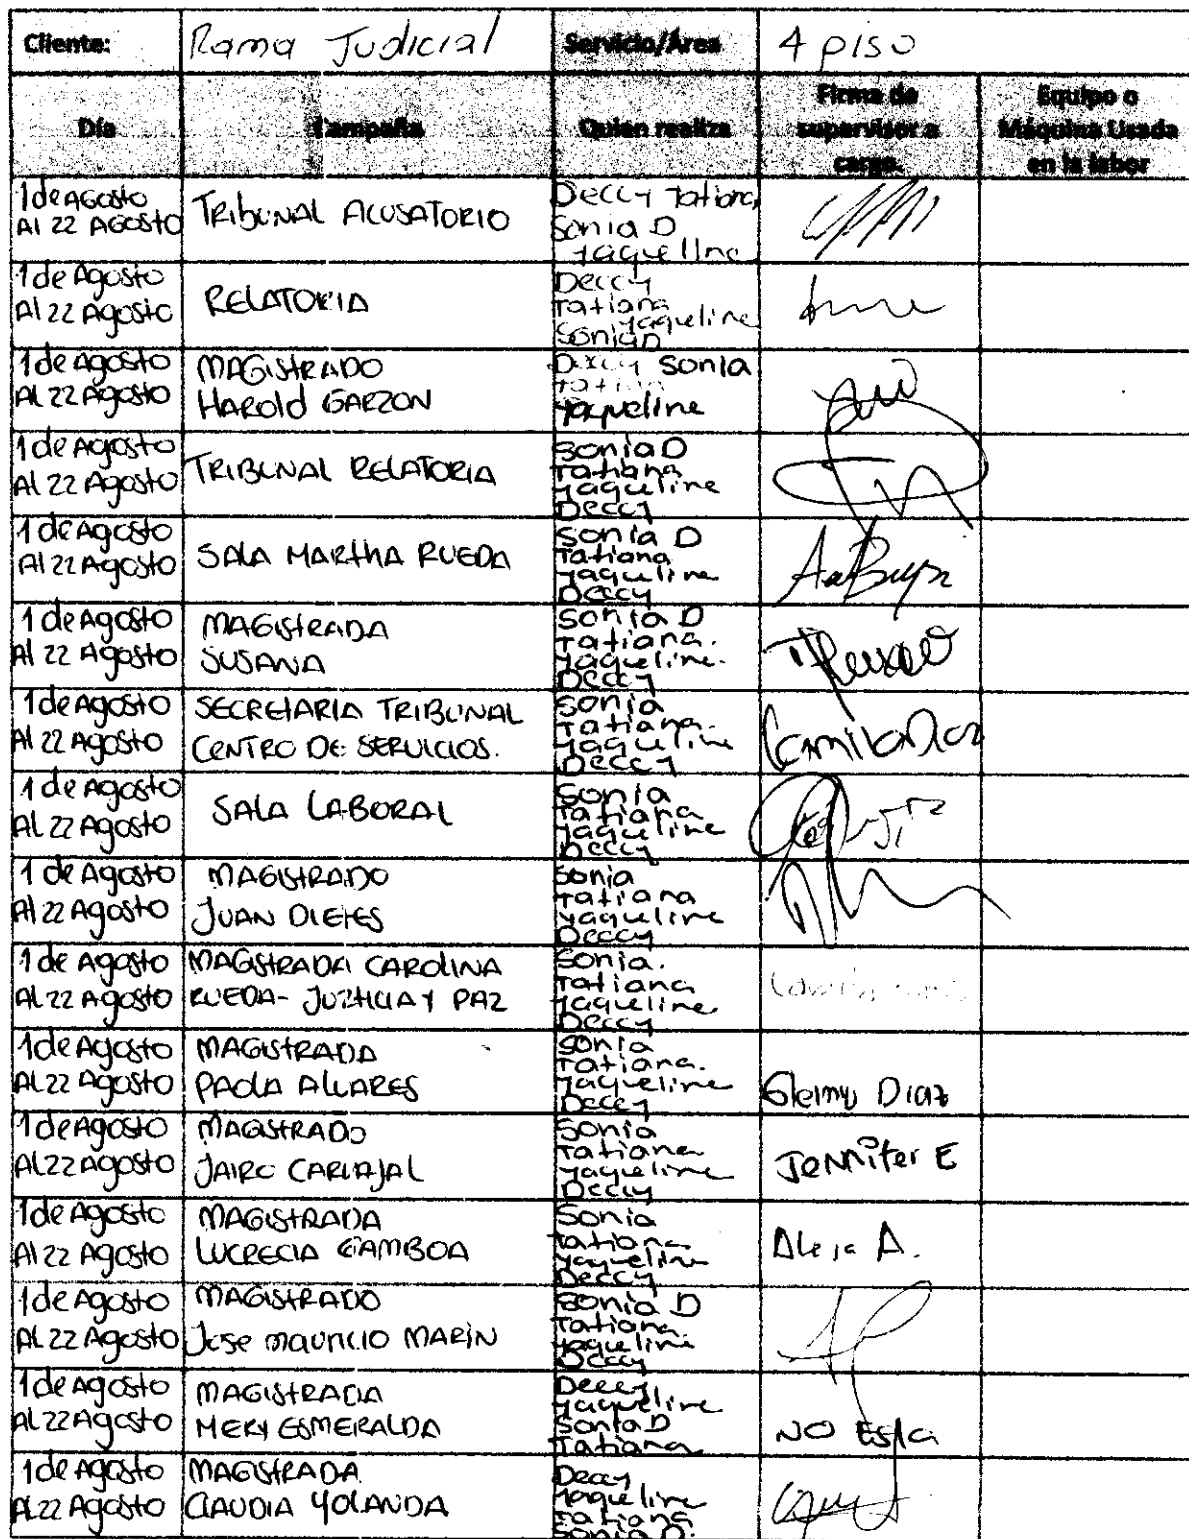 Cliente: Rama Judicial Servicio/Área 4 piso
Día Campaña Quien realiza Firma de supervisor a cargo. Equipo o Máquina Usada en la labor
1 de AGosto
Al 22 AGosto
TRIBUNAL ACUSATORIO
Deccy Tatiana
Sonia D
Yaqueline
1 de Agosto
Al 22 Agosto
RELATORIA
Deccy
Tatiana
Yaqueline
Sonia D
1 de Agosto
Al 22 Agosto
MAGISTRADO
HAROLD GARZON
Deccy Sonia
Tatiana
Yaqueline
1 de Agosto
Al 22 Agosto
TRIBUNAL RELATORIA
Sonia D
Tatiana
Yaqueline
Deccy
1 de Agosto
Al 22 Agosto
SALA MARTHA RUEDA
Sonia D
Tatiana
Yaqueline
Deccy
1 de Agosto
Al 22 Agosto
MAGISTRADA
SUSANA
Sonia D
Tatiana.
Yaqueline.
Deccy
1 de Agosto
Al 22 Agosto
SECRETARIA TRIBUNAL
CENTRO DE SERVICIOS.
Sonia
Tatiana.
Yaqueline
Deccy
Camilo Diaz
1 de Agosto
Al 22 Agosto
SALA LABORAL
Sonia
Tatiana
Yaqueline
Deccy
1 de Agosto
Al 22 Agosto
MAGISTRADO
JUAN DIEFES
Sonia
Tatiana
Yaqueline
Deccy
1 de Agosto
Al 22 Agosto
MAGISTRADA CAROLINA
RUEDA- JUZTICIA Y PAZ
Sonia.
Tatiana
Yaqueline
Deccy
1 de Agosto
Al 22 Agosto
MAGISTRADA
PAOLA ALVARES
Sonia
Tatiana.
Yaqueline
Deccy
Gleimy Diaz
1 de Agosto
Al 22 Agosto
MAGISTRADO
JAIRO CARVAJAL
Sonia
Tatiana
Yaqueline
Deccy
Jennifer E
1 de Agosto
Al 22 Agosto
MAGISTRADA
LUCRECIA GAMBOA
Sonia
Tatiana
Yaqueline
Deccy
Aleja A.
1 de Agosto
Al 22 Agosto
MAGISTRADO
Jose mauricio MARIN
Sonia D
Tatiana
Yaqueline
Deccy
1 de Agosto
Al 22 Agosto
MAGISTRADA
MERY ESMERALDA
Deccy
Yaqueline
Sonia D
Tatiana
NO Esta
1 de Agosto
Al 22 Agosto
MAGISTRADA
CLAUDIA YOLANDA
Deccy
Yaqueline
Tatiana
Sonia D.